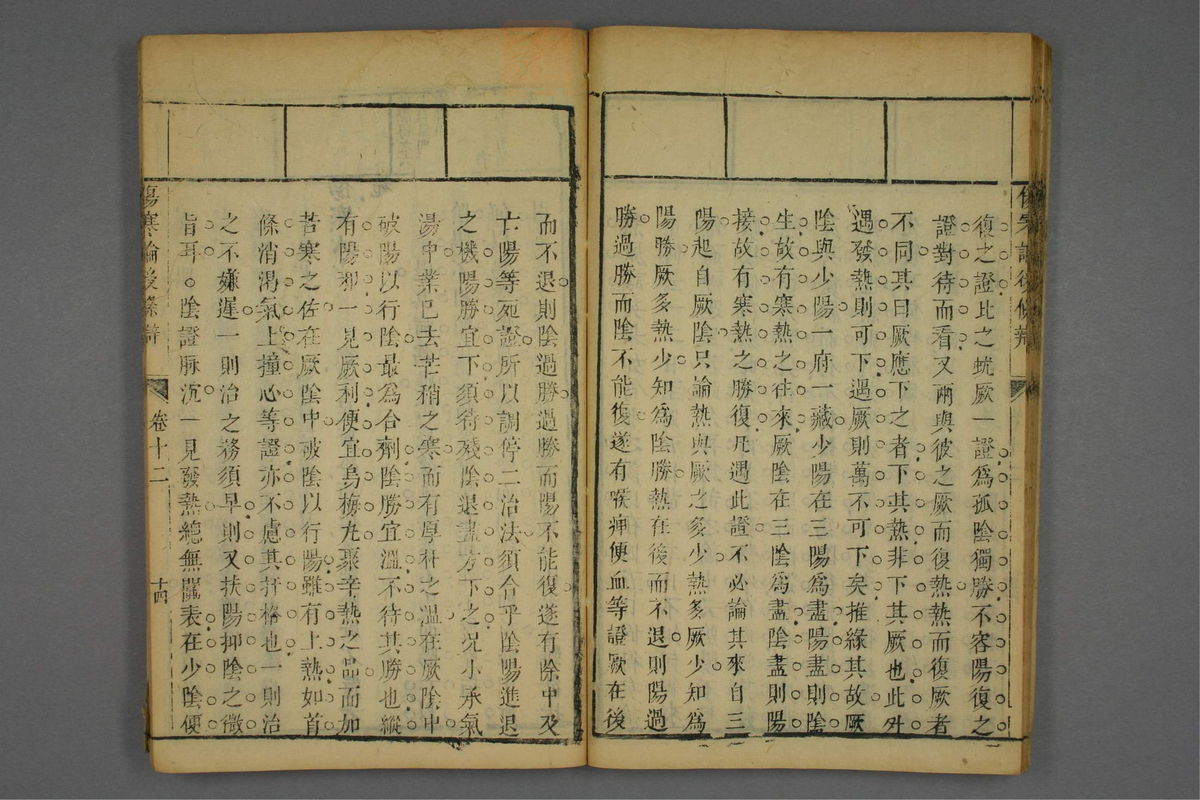 傷寒論後條辯
復之證比之蚘厥一證爲孤陰獨勝不容陽復之
證對待而看又兩與彼之厥而復熱熱而復厥者
不同其曰厥應下之者下其熱非下其厥也此외
遇發熱則可下遇厥則萬不可下矣推緣其故厥
陰與少陽一府一藏少陽在三陽爲盡陽盡則陰
生故有寒熱之往來厥陰在三陰爲盡陰盡則陽
接故有寒熱之勝復凡遇此證不必論其來自三
陽起自厥陰只論熱與厥之多少熱多厥少知爲
陽勝厥多熱少知爲陰勝熱在後而不退則陽過
勝過勝而陰不能復遂有喉痺便血等證厥在後
而不退則陰過勝過勝而陽不能復遂有除中及
亡陽等死證所以調停二治法須合乎陰陽進退
之機陽勝宜下須待殘陰退盡方下之况小承氣
湯中業已去芒稍之寒而有厚朴之溫在厥陰中
破陽以行陰最爲合劑陰勝宜溫不待其勝也縱
有陽邪一見厥利便宜烏梅丸聚辛熱之品而加
苦寒之佐在厥陰中破陰以行陽雖有上熱如首
條消渴氣上撞心等證亦不慮其扞格也一則治
之不嫌遲一則治之務須早則又扶陽抑陰之微
旨耳○陰證脉沉一見發熱總無關表在少陰便
傷寒論後條辯
卷十二
十四